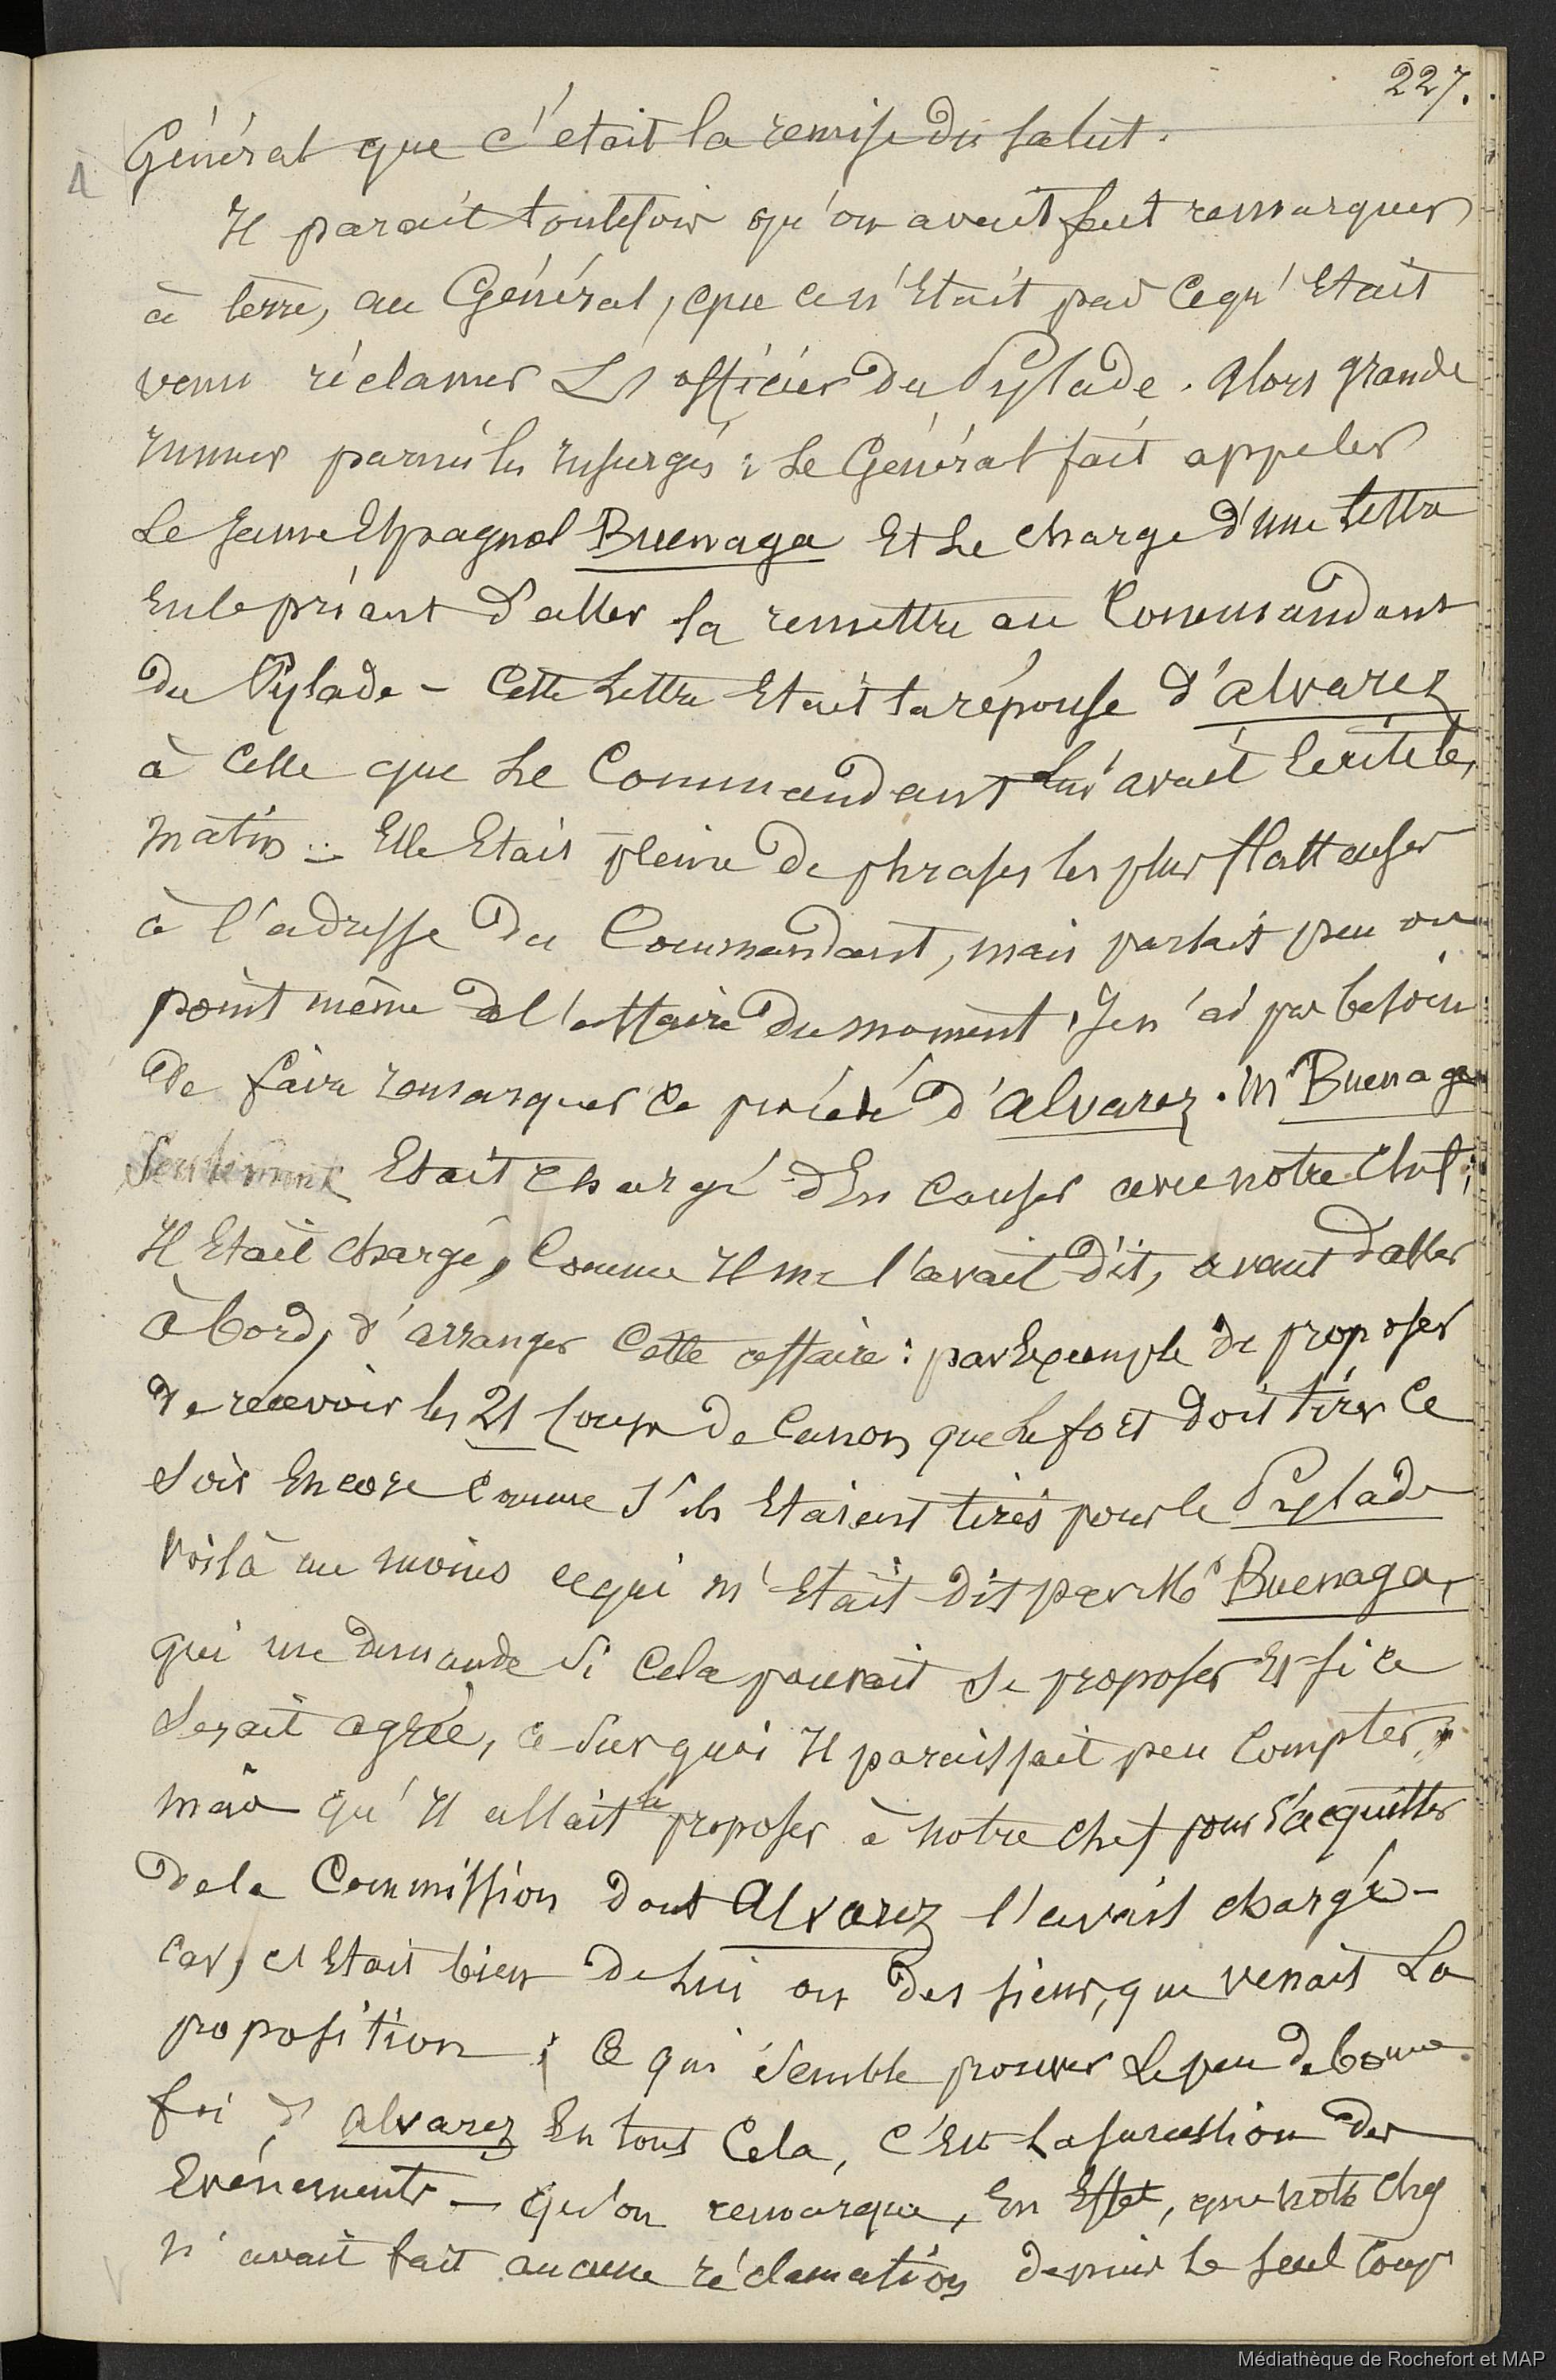 227.
Général que c'était la remise du salut.
Il parait toutefois qu'on avait fait remarquer
à terre, au Général, que ce n'Etait pas ce qu'Etait
venu réclamer Les officier du Pylade. Alors grande
rumer parmi les Insurgés : Le Général fait appeler
Le Jeune Espagnol Buenaga Et Le charge d'une Lettre
En le priant d'aller la remettre au Commandant
du Pylade - Cette Lettre Etait la réponse d'alvarez
à Celle que Le Commandant lui avait Ecrite le
matin - Elle Etait pleine de phrases les plus flatteuses
à l'adresse du Commandant, mais parlait peu ou
point même de l'affaire du moment. Je n'ai pas besoin
de faire remarquer ce procédé d'alvarez. Mr Buenaga
Seulement Etait chargé d'En causer avec notre Chef;
Il Etait chargé, Comme Il me l'avait dit, avant d'aller
à bord, d'arranger Cette affaire : par Exemple de proposer
de recevoir les 21 Coups de Canon que Le fort doit tirer Ce
soir Encore comme s'ils Etaient tirés pour le Pylade
voilà au moins ce qui m'Etait dit par Mr Buenaga,
qui me demande si Cela pouvait se proposer Et si ce
serait agréé, ce sur quoi Il paraissait peu Compter,
mais qu'Il allait le proposer à notre chef pour s'acquitter
de la Commission dont Alvarez l'avait chargé -
Car, c'Etait bien de Lui ou des siens, que venait La
proposition ; Ce qui semble prouver Le peu de bonne
foi d'alvarez En tout Cela, C'Est La succession des
Evénements - qu'on remarque, En Effet, que notre Chef
n'avait fait aucune réclamation depuis le seul Coup
Médiathèque de Rochefort et MAP